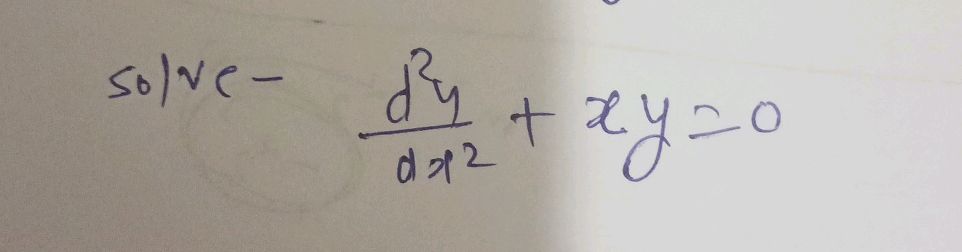 solve - d²y/dx² + xy = 0